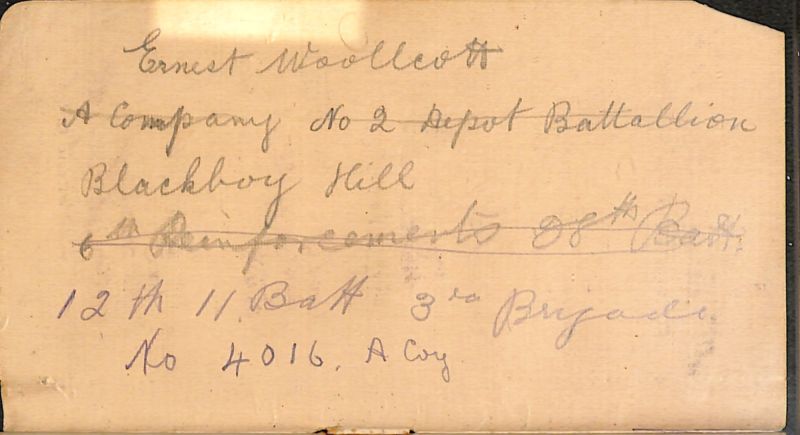 Ernest Woollcott
A Company No 2 Depot Battallion
Blackboy Hill
6th Reinforcements 28th Batt.
12th 11 Batt 3rd Brigade
No 4016. A Coy